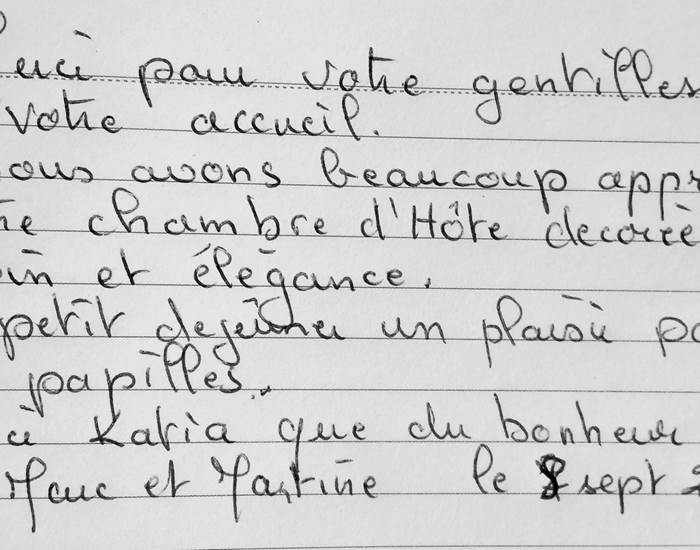 erci pour votre gentilles
votre accueil.
ous avons beaucoup appr
re chambre d'Hôte decorée
in et élégance.
petit dejeuner un plaisir po
papilles.
ci Katia que du bonheur
Marc et Martine le 8 sept 2